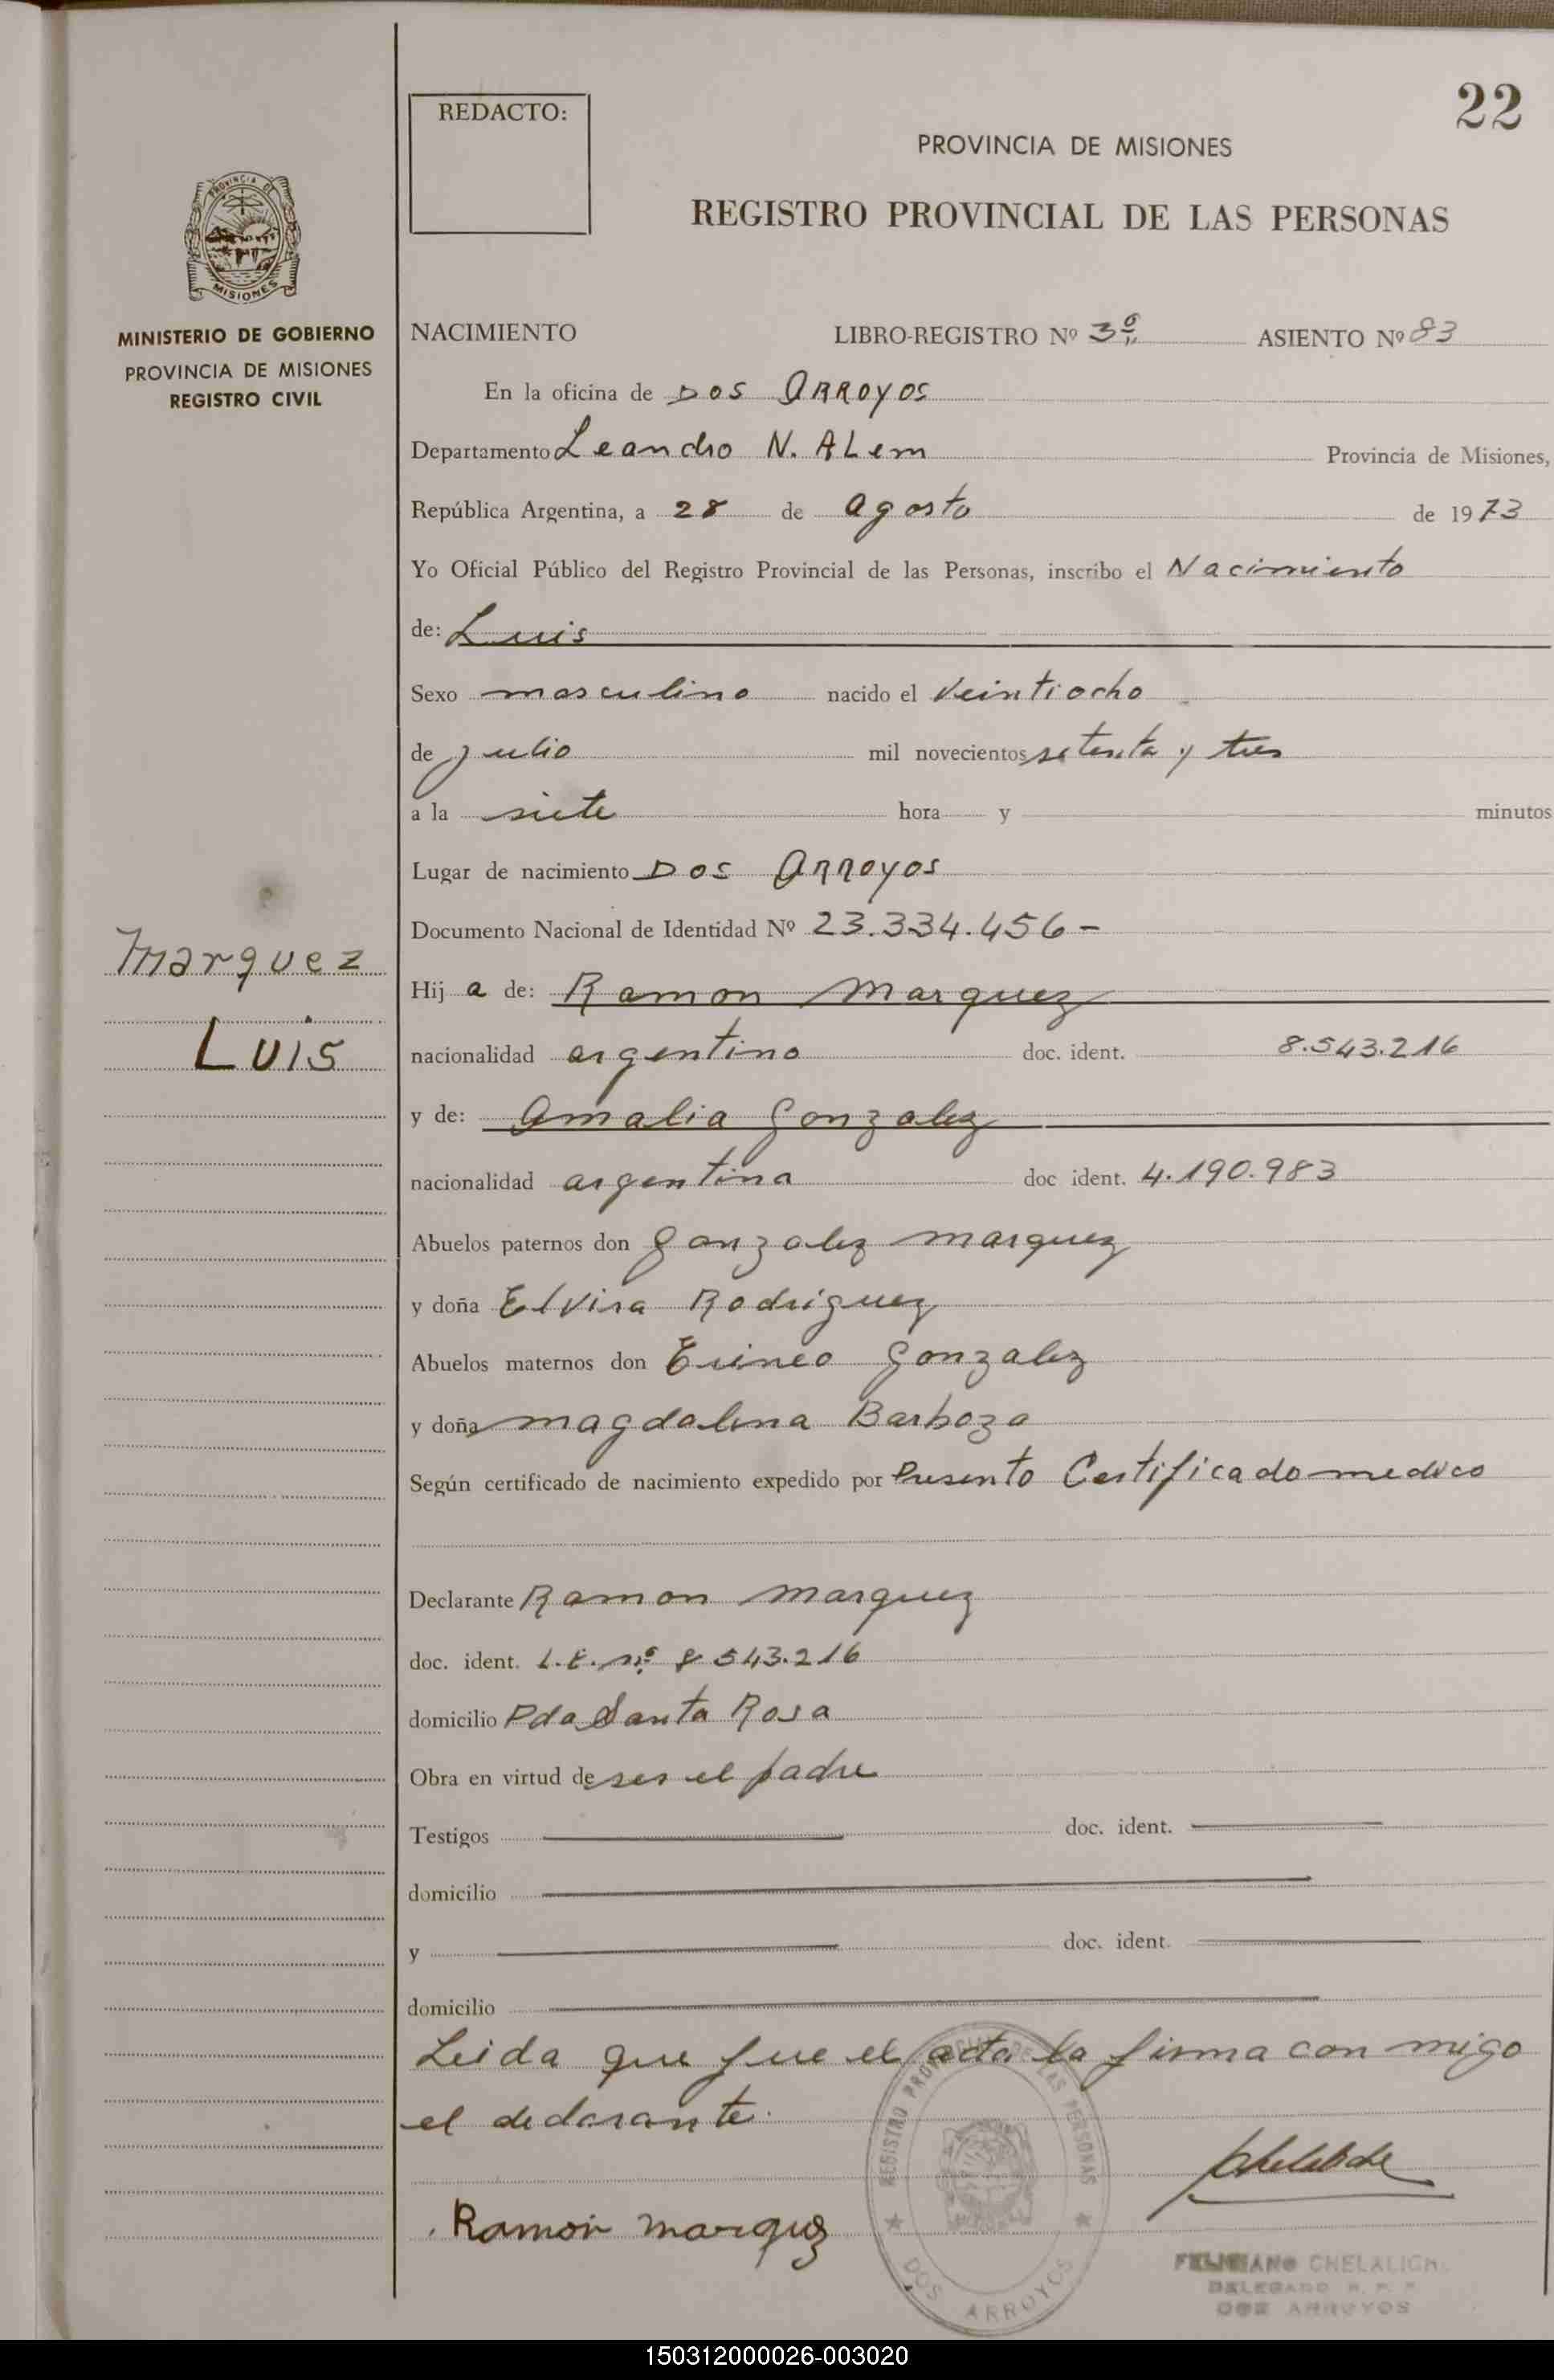 22
REDACTO:
PROVINCIA DE MISIONES
REGISTRO PROVINCIAL DE LAS PERSONAS
PROVINCIA DE
MISIONES
MINISTERIO DE GOBIERNO
PROVINCIA DE MISIONES
REGISTRO CIVIL
NACIMIENTO LIBRO-REGISTRO Nº 3º ASIENTO Nº 83
En la oficina de Dos Arroyos
Departamento Leandro N. ALem Provincia de Misiones,
República Argentina, a 28 de agosto de 1973
Yo Oficial Público del Registro Provincial de las Personas, inscribo el Nacimiento
de: Luis
Sexo masculino nacido el Veintiocho
de julio mil novecientos setenta y tres
a la siete hora y minutos
Lugar de nacimiento Dos Arroyos
Documento Nacional de Identidad Nº 23.334.456 -
Marquez
Luis
Hij a de: Ramon Marquez
nacionalidad argentino doc. ident. 8.543.216
y de: Amalia Gonzalez
nacionalidad argentina doc ident. 4.190.983
Abuelos paternos don Gonzalez Marquez
y doña Elvira Rodriguez
Abuelos maternos don Erineo Gonzalez
y doña Magdalena Barboza
Según certificado de nacimiento expedido por Presento Certificado medico
Declarante Ramon Marquez
doc. ident. L.E. nº 8 543.216
domicilio Pda Santa Rosa
Obra en virtud de ser el padre
Testigos doc. ident.
domicilio
y doc. ident.
domicilio
Leida que fue el acta la firma con migo
el declarante.
Ramon Marquez
REGISTRO PROVINCIAL DE LAS PERSONAS
DOS ARROYOS
FELICIANO CHELALICH
DELEGADO R. P. P.
DOS ARROYOS
150312000026-003020